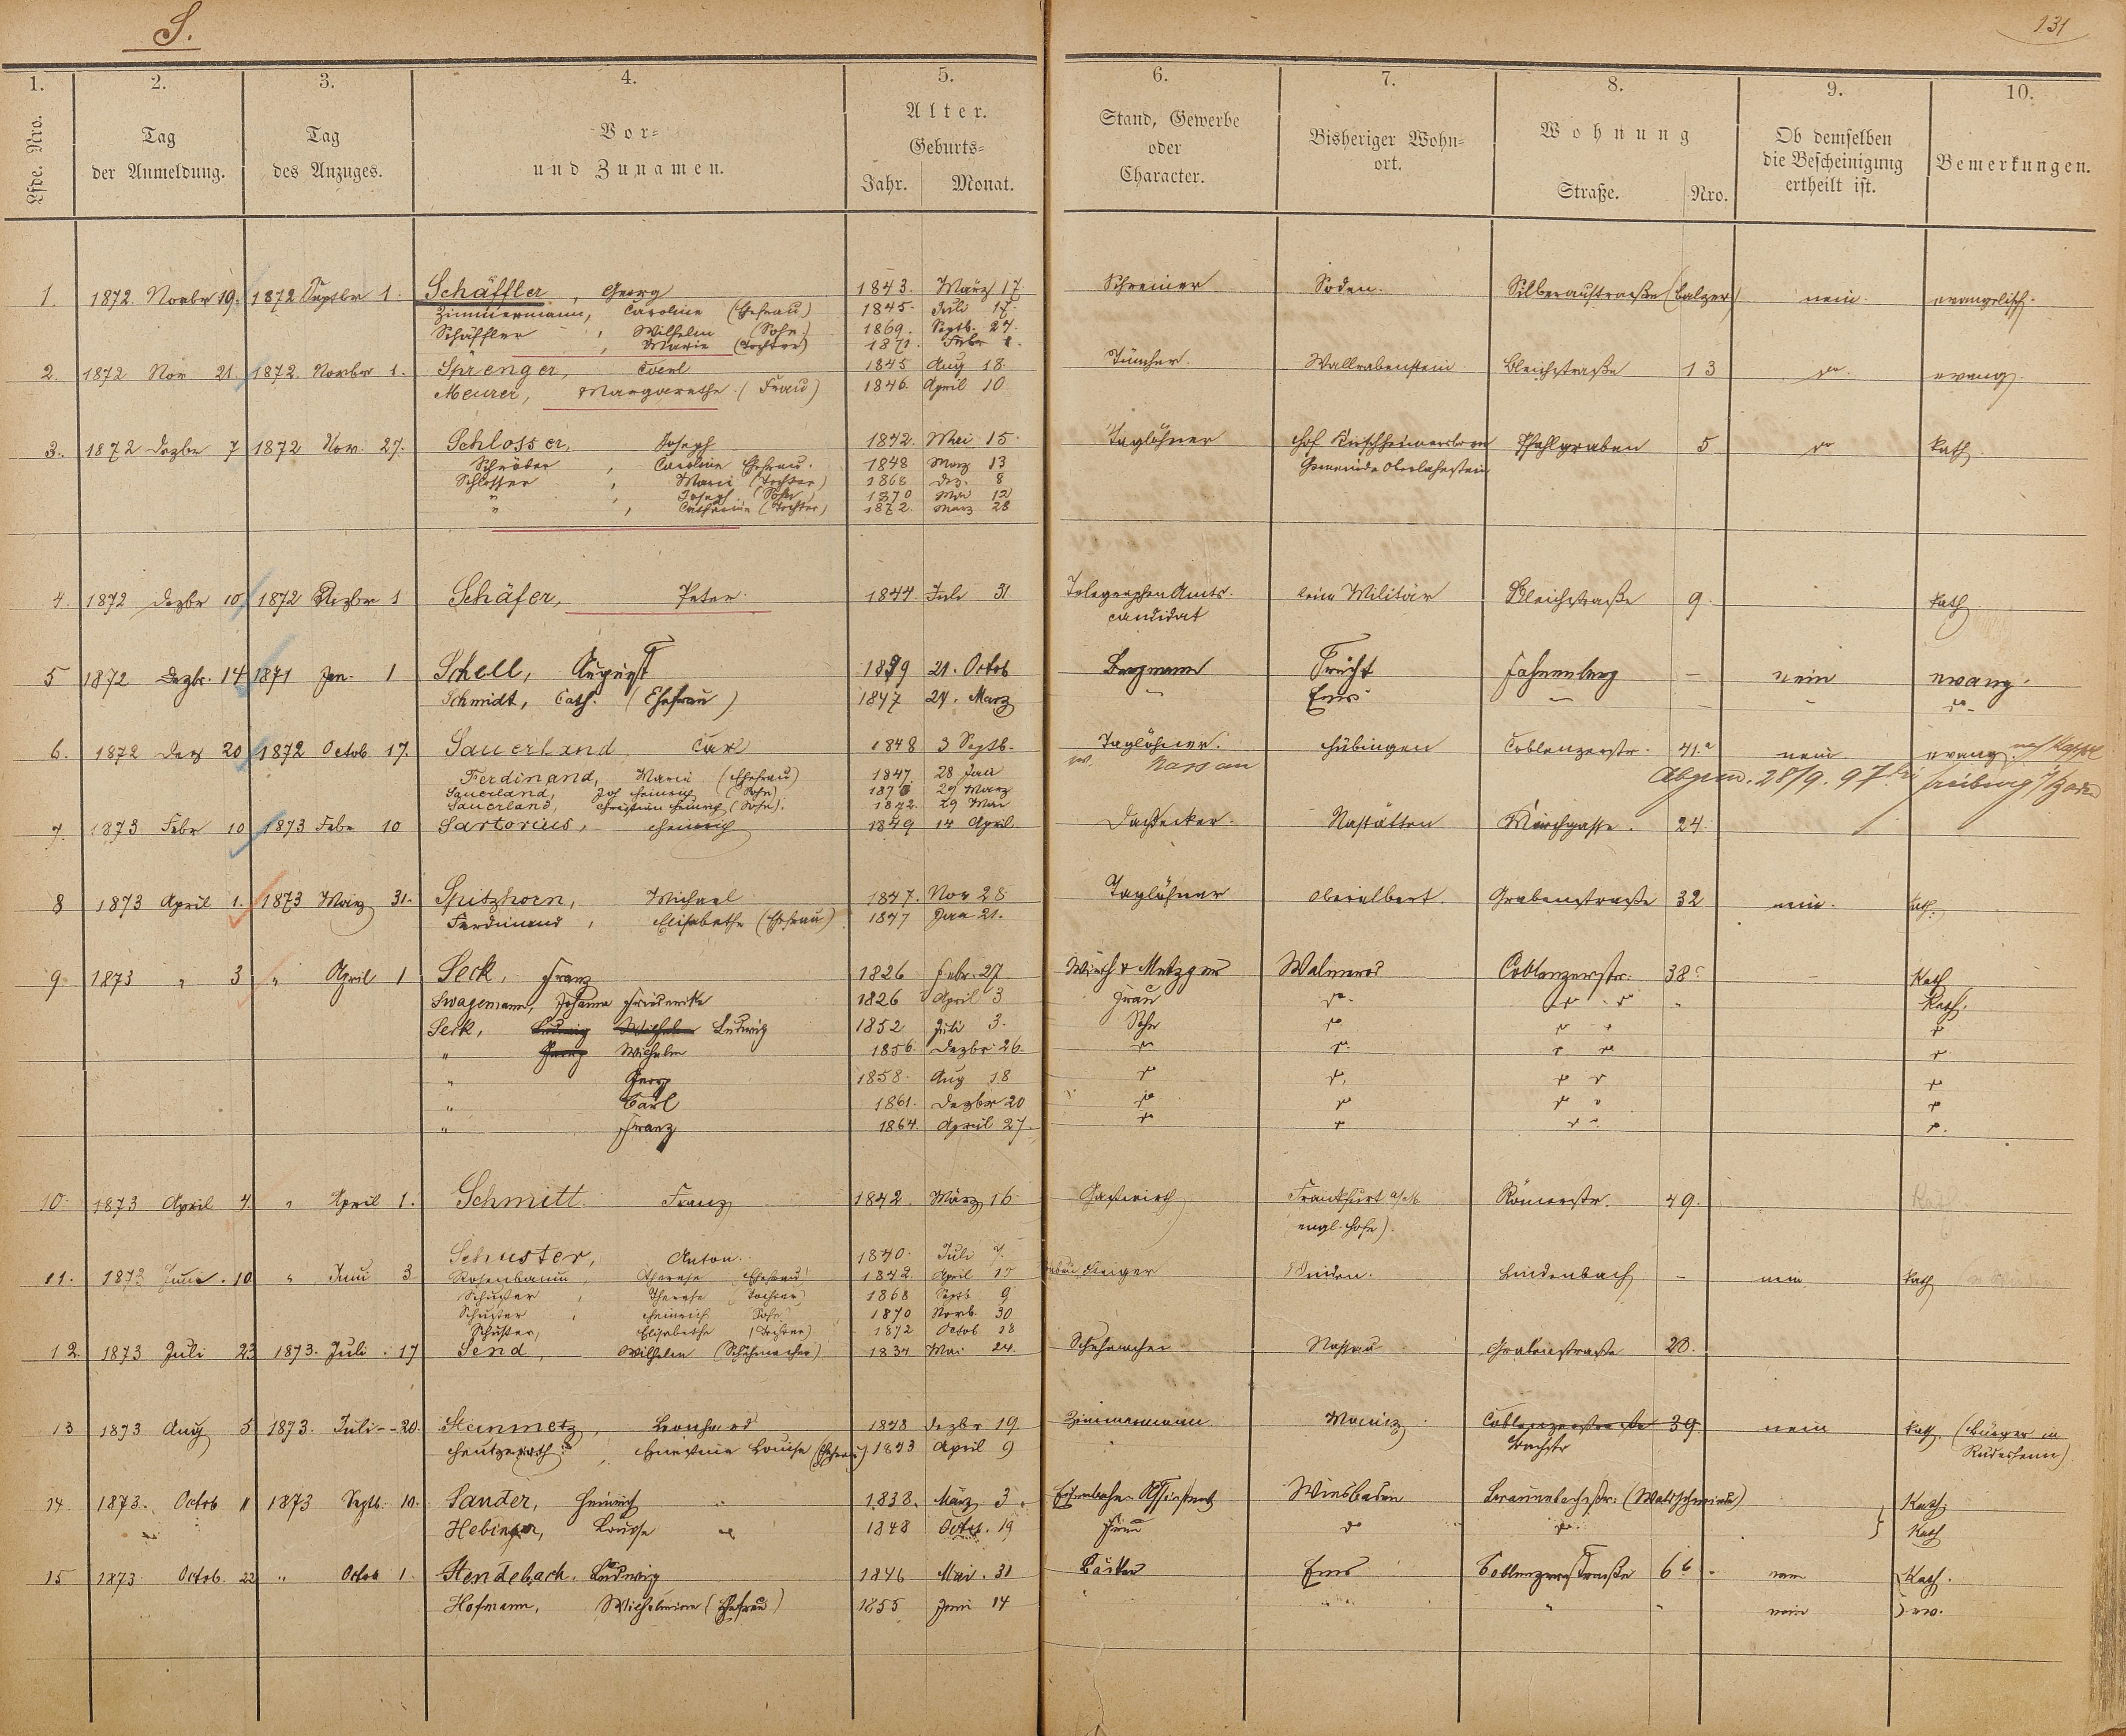 S.
131
1. 2. 3. 4. 5. 6. 7. 8. 9. 10.
Lfde. Nro.
Tag der Anmeldung.
Tag des Anzuges.
Vor- und Zunamen.
Alter.
Geburts-
Jahr. Monat.
Stand, Gewerbe oder Character.
Bisheriger Wohn-ort.
Wohnung
Straße. Nro.
Ob demselben die Bescheinigung ertheilt ist.
Bemerkungen.
1. 1872. Novbr 19. 1872 Septbr 1. Schäffler, Georg 1843. März 17. Schreiner Soden. Silberaustraße (Balzer) nein. evangelisch.
Zimmermann, Caroline (Ehefrau) 1845. Juli 17.
Schäffler, Wilhelm (Sohn) 1869. Septb. 27.
, Marie (Tochter) 1871. Febr 1.
2. 1872 Nov 21. 1872. Novbr 1. Sprenger, Carl 1845 Aug 18. Tüncher. Wallrabenstein Bleichstraße 13 do. evang.
Meurer, Margarethe (Frau) 1846. April 10
3. 1872 Dezbr 7 1872 Nov. 27. Schlosser, Joseph 1842. Mai 15. Taglöhner Hof Pfahlgraben 5 do Kath.
Gemeinde Oberlahnstein
Schröder, Caroline Ehefrau. 1848 März 13
Schlosser, Marie (Tochter) 1868 Dez. 8
" , Joseph (Sohn) 1870 Mai 12
" , Catharine (Tochter) 1872. März 28
4. 1872 Dezbr 10 1872 Dezbr 1 Schäfer, Peter. 1844. Juli 31 Telegraphen Amts. beim Militär Bleichstraße 9. Kath.
candidat
5 1872 Dezbr. 14 1871 Jan. 1 Schell, August 1849 21. Octob Bergmann Frücht Fahnenberg — nein evang.
Schmidt, Cath. (Ehefrau) 1847 24. März " Ems — — " do
6. 1872 Dez 20 1872 Octob 17. Sauerland Carl 1848 3 Septb. Taglöhner. Hübingen Coblenzerstr. 41.a nein evang.
Nassau
Abgem. 28/9. 97. Freiburg i/Baden
Ferdinand, Marie (Ehefrau) 1847. 28 Jan
Sauerland, Joh Heinrich (Sohn) 1870 27 März
Sauerland, Christian Heinrich (Sohn). 1872. 29 Mai
7. 1873 Febr 10 1873 Febr 10 Sartorius, Heinrich 1849 14 April Dachdecker. Nastätten Kirchgasse. 24.
8 1873 April 1. 1873 März 31. Spitzhorn, Michael 1847. Nov 28 Taglöhner Oberelbert. Grabenstraße 32 nein. Kath.
Ferdinand, Elisabethe (Ehefrau) 1847 Jan 21.
9 1873 " 3 " April 1 Seck, Franz 1826 Febr. 27 Wirth & Metzger Walmerod Coblenzerstr. 38c — Kath
Swagemann, Johanna Friedericke 1826 April 3 Frau do. do do " Kath.
Seck, Ludwig Wilhelm Ludwig 1852 Juli 3. Sohn do do do do
" Franz Wilhelm 1856. Dezbr 26. do do. do do do
" Georg 1858. Aug 18 do do. do do do
" Carl 1861. Dezbr 20 do do do do do
" Franz 1864. April 27. do do do do do.
10. 1873 April 4. " April 1. Schmitt Franz 1842. März 16 Gastwirth Frankfurt a/M. Römerstr. 49. Kath
engl. Hofe).
11. 1873 Juni. 10 " Juni 3 Schuster, Anton. 1840. Juli 7. Steiger Linden. Lindenbach — nein Kath
Rosenbaum, Therese (Ehefrau) 1842. April 15
Schuster, Therese (Tochter) 1868 Septb 9
Schuster, Heinrich Sohn. 1870 Novb. 30
Schuster, Elisabethe (Tochter) 1872 Octob 18
12. 1873 Juli 23 1873. Juli 17 Send, Wilhelm (Schuhmacher) 1834 Mai 24. Schuhmacher Nassau Grabenstraße 20.
13 1873 Aug 5 1873. Juli 20. Steinmetz, Leonhard 1848 Dezbr 19 Zimmermann Mainz Coblenzerstraße 39 nein Kath. (Bürger in
Rüdesheim)
Louise (Ehefrau) 1843 April 9 Bachstr
14. 1873. Octob 11 1873 Septb. 10. Sander, Heinrich 1838. März 3. Eisenbahn Assistent Wiesbaden Braunebachstr. (Waldschmidt) Kath.
Hebinger, Louise 1848 Octob. 19 Frau do do. Kath
15 1873 Octob. 22 " Octob 1. Stendebach. Ludwig 1846 Mai. 31 Bäcker Ems Coblenzerstraße 6b nein Kath.
Hofmann, Wilhelmine (Ehefrau) 1855 Juni 14 " " " " nein ev.